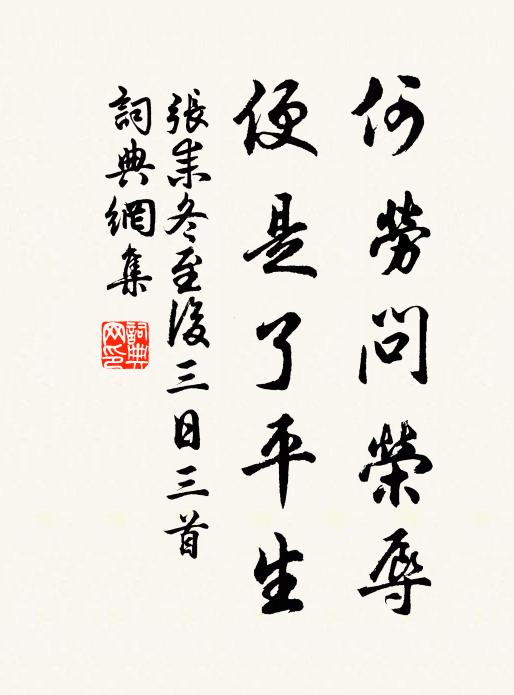 何勞問榮辱
便是了平生
張耒冬至後三日三首
詞典網集
詞典網印